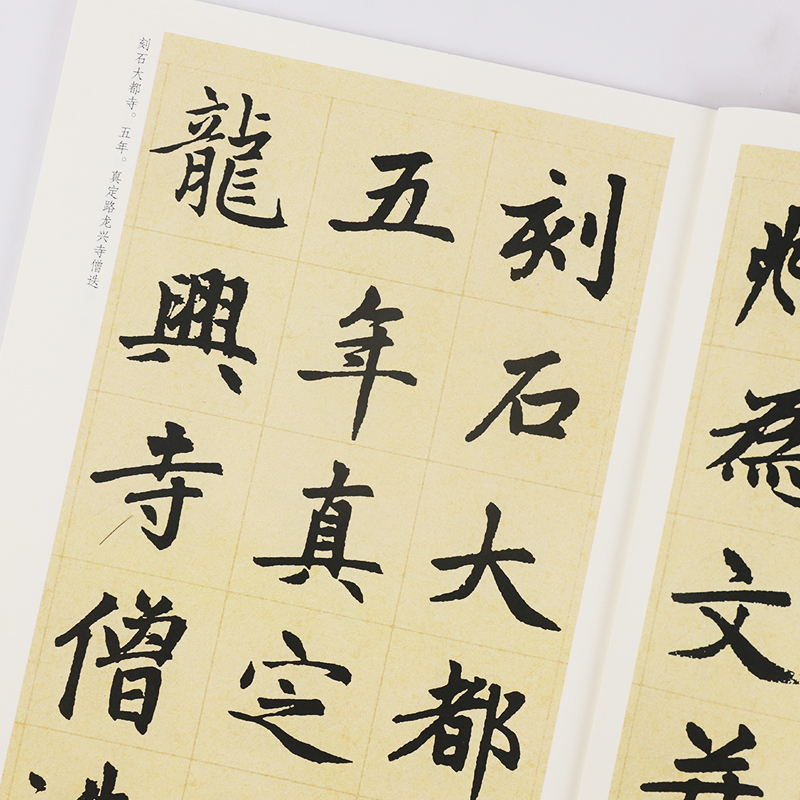 為文并
刻石大都
五年真定
龍興寺僧
刻石大都寺。五年。真定路龙兴寺僧迭